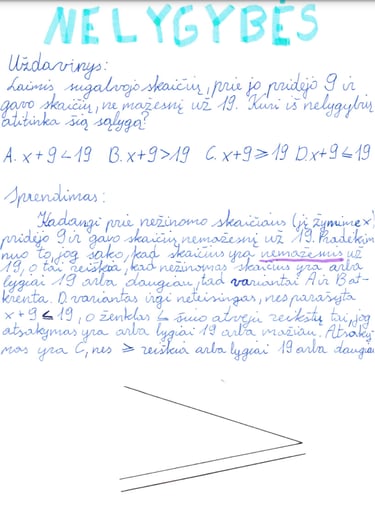 NELYGYBĖS
Uždavinys:
Laimis sugalvojo skaičių, prie jo pridėjo 9 ir
gavo skaičių, ne mažesnį už 19. Kuri iš nelygybių
atitinka šią sąlygą?
A. x+9<19 B. x+9>19 C. x+9⩾19 D. x+9⩽19
Sprendimas:
Kadangi prie nežinomo skaičiaus (jį žymime x)
pridėjo 9 ir gavo skaičių nemažesnį už 19. Pradėkim
nuo to, jog sako, kad skaičius yra nemažesnis už
19, o tai reiškia, kad nežinomas skaičius yra arba
lygiai 19 arba daugiau, tad variantai A ir B at-
krenta. D variantas irgi neteisingas, nes parašyta
x+9⩽19, o ženklas ⩽ šiuo atveji reikštų tai, jog
atsakymas yra arba lygiai 19 arba mažiau. Atsaky-
mas yra C, nes ⩾ reiškia arba lygiai 19 arba daugiau